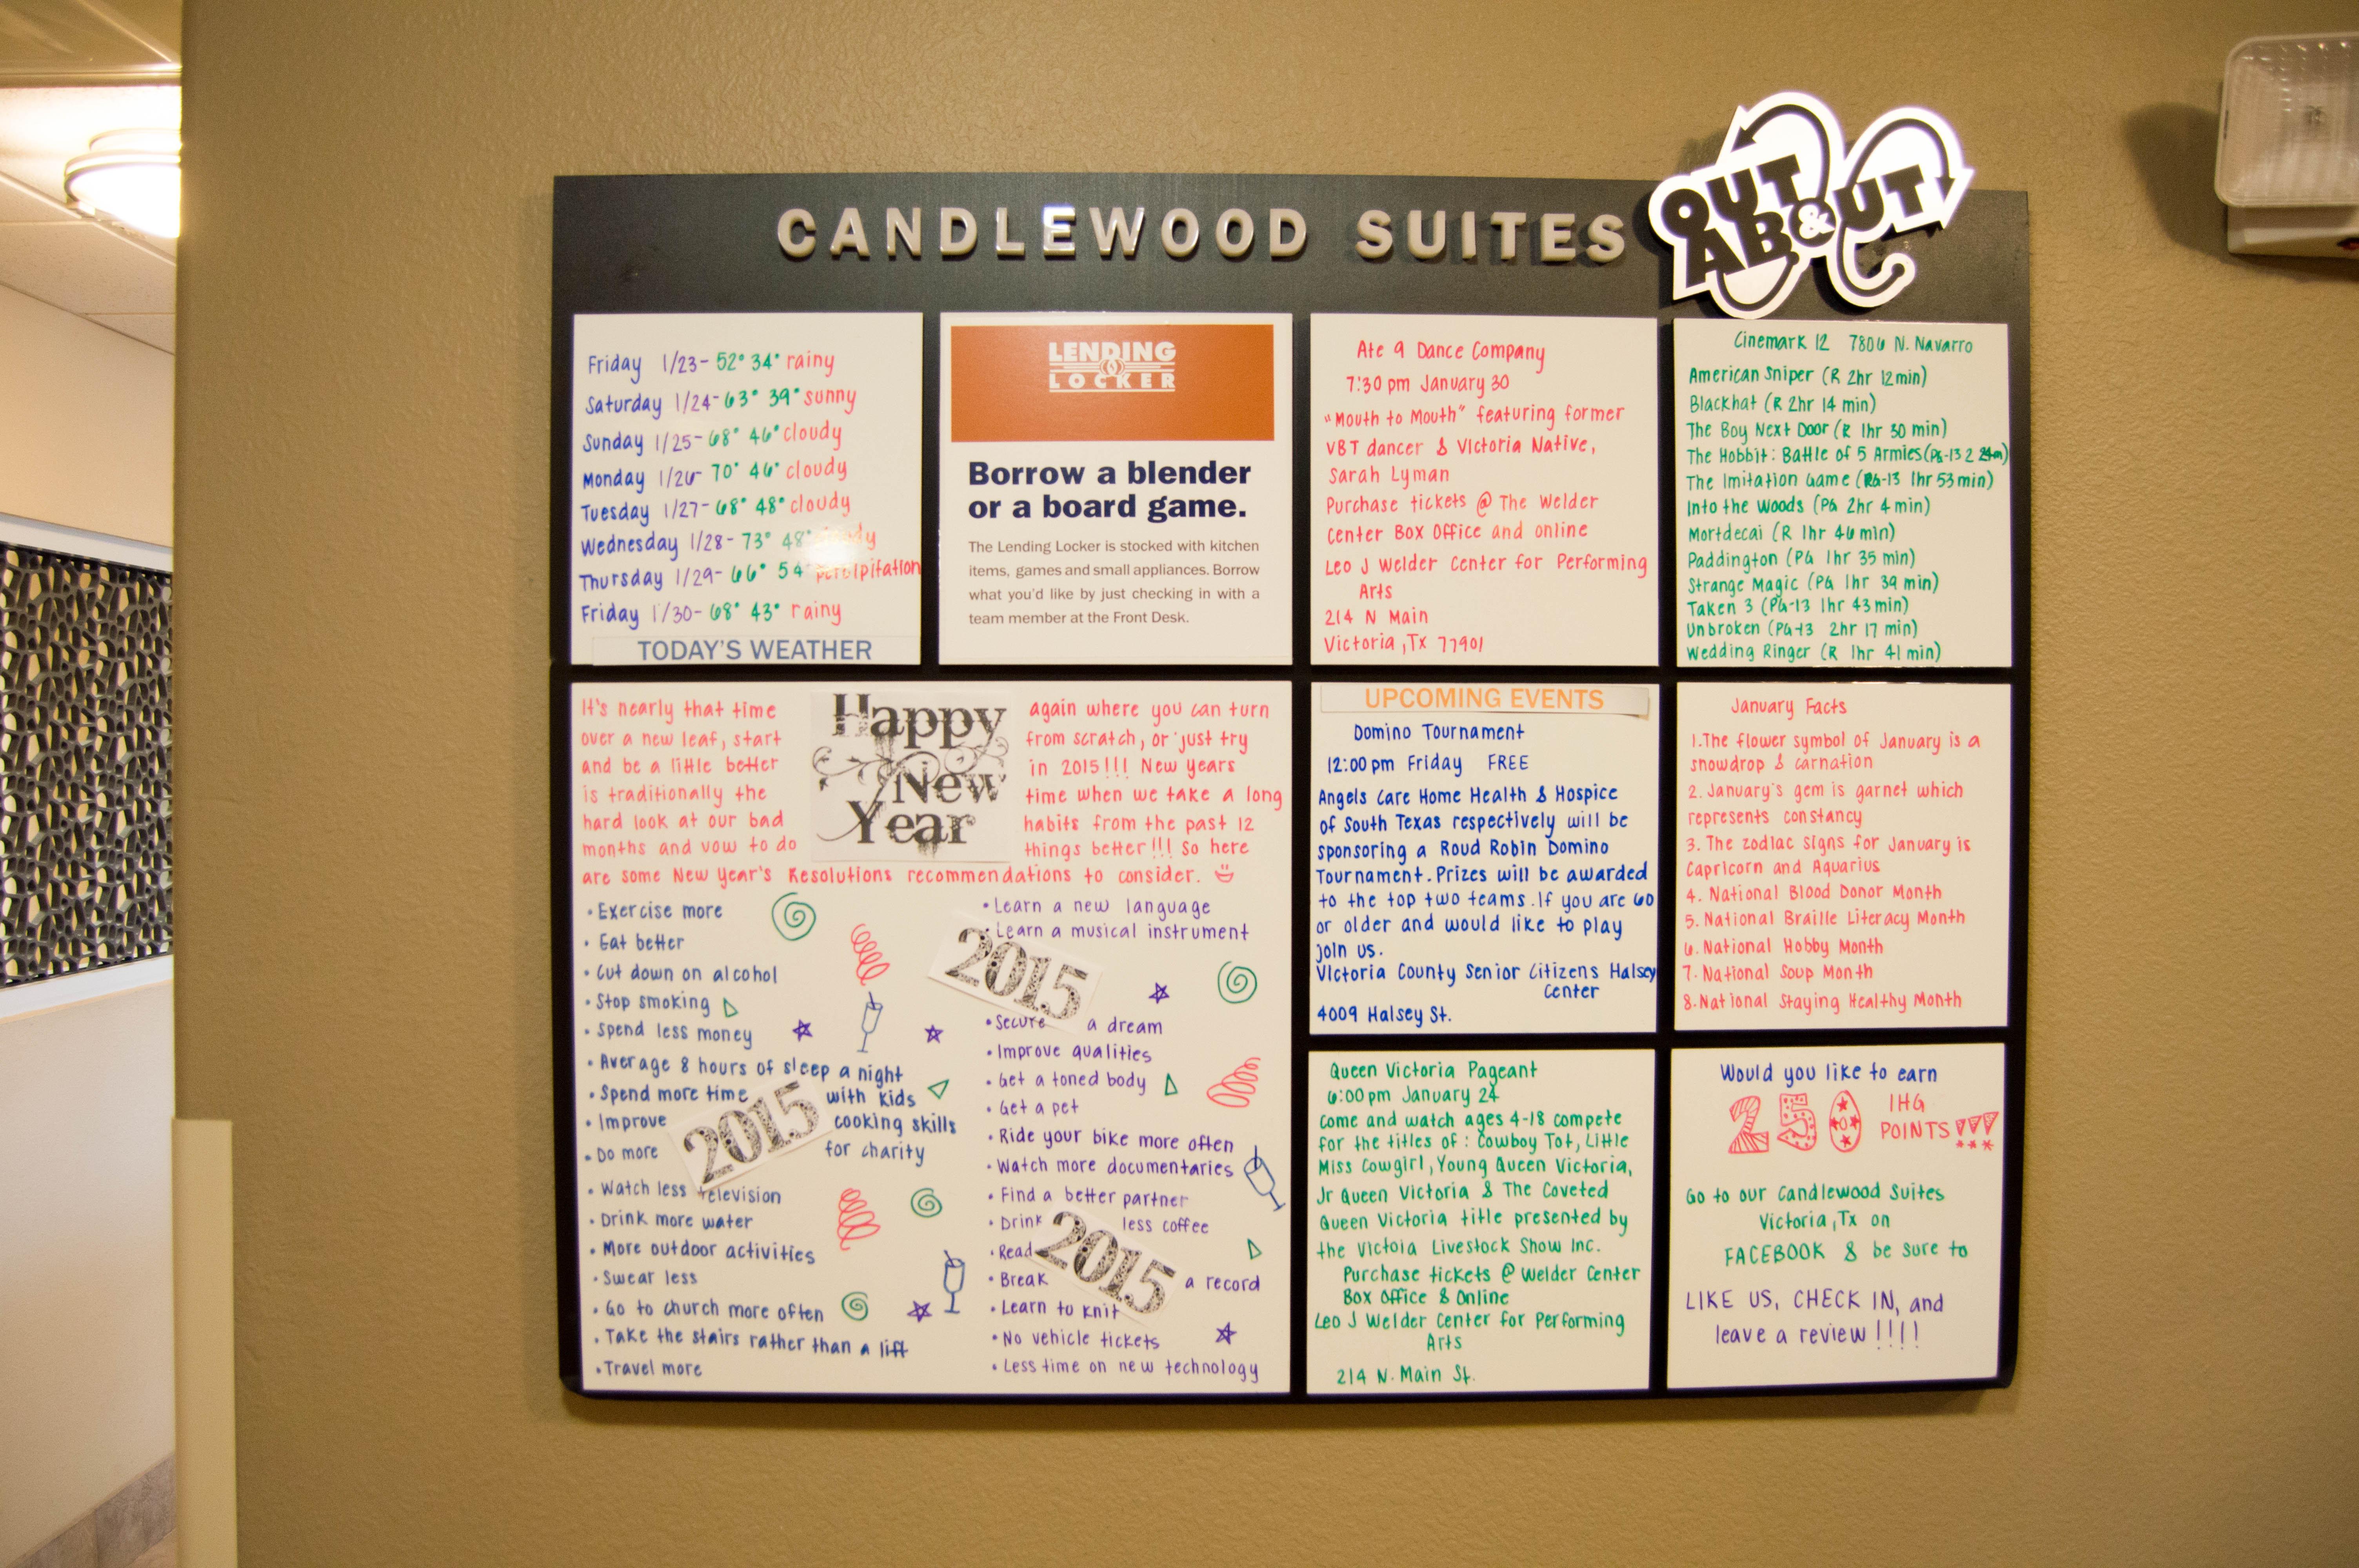 CANDLEWOOD SUITES
OUT & ABOUT
Friday 1/23- 52° 34° rainy
Saturday 1/24- 63° 39° sunny
Sunday 1/25- 68° 46° cloudy
Monday 1/26- 70° 46° cloudy
Tuesday 1/27- 68° 48° cloudy
Wednesday 1/28- 73° 48°
Thursday 1/29- 66° 54°
Friday 1/30- 68° 43° rainy
TODAY'S WEATHER
LENDING
LOCKER
Borrow a blender
or a board game.
The Lending Locker is stocked with kitchen
items, games and small appliances. Borrow
what you'd like by just checking in with a
team member at the Front Desk.
Ate 9 Dance Company
7:30 pm January 30
"Mouth to Mouth" featuring former
VBT dancer & Victoria Native,
Sarah Lyman
Purchase tickets @ The Welder
Center Box Office and online
Leo J Welder Center for Performing
Arts
214 N Main
Victoria, Tx 77901
Cinemark 12 7806 N. Navarro
American Sniper (R 2hr 12min)
Blackhat (R 2hr 14 min)
The Boy Next Door (R 1hr 30 min)
The Hobbit: Battle of 5 Armies (PG-13 2
The Imitation Game (PG-13 1hr 53min)
Into the Woods (PG 2hr 4 min)
Mortdecai (R 1hr 46 min)
Paddington (PG 1hr 35 min)
Strange Magic (PG 1hr 39 min)
Taken 3 (PG-13 1hr 43min)
Unbroken (PG-13 2hr 17 min)
Wedding Ringer (R 1hr 41 min)
It's nearly that time again where you can turn
over a new leaf, start from scratch, or just try
and be a little better in 2015!!! New years
is traditionally the time when we take a long
hard look at our bad habits from the past 12
months and vow to do things better!!! So here
are some New Year's Resolutions recommendations to consider.
Happy
New
Year
• Exercise more
• Eat better
• Cut down on alcohol
• Stop smoking
• Spend less money
• Average 8 hours of sleep a night
• Spend more time with kids
• Improve cooking skills
• Do more for charity
• Watch less television
• Drink more water
• More outdoor activities
• Swear less
• Go to church more often
• Take the stairs rather than a lift
• Travel more
2015
• Learn a new language
• Learn a musical instrument
2015
• Secure a dream
• Improve qualities
• Get a toned body
• Get a pet
• Ride your bike more often
• Watch more documentaries
• Find a better partner
• Drink less coffee
• Read
• Break a record
• Learn to knit
• No vehicle tickets
• Less time on new technology
2015
UPCOMING EVENTS
Domino Tournament
12:00 pm Friday FREE
Angels Care Home Health & Hospice
of South Texas respectively will be
sponsoring a Roud Robin Domino
Tournament. Prizes will be awarded
to the top two teams. If you are 60
or older and would like to play
join us.
Victoria County Senior Citizens Halsey
Center
4009 Halsey St.
January Facts
1. The flower symbol of January is a
snowdrop & carnation
2. January's gem is garnet which
represents constancy
3. The zodiac signs for January is
Capricorn and Aquarius
4. National Blood Donor Month
5. National Braille Literacy Month
6. National Hobby Month
7. National Soup Month
8. National Staying Healthy Month
Queen Victoria Pageant
6:00 pm January 24
Come and watch ages 4-18 compete
for the titles of: Cowboy Tot, Little
Miss Cowgirl, Young Queen Victoria,
Jr Queen Victoria & The Coveted
Queen Victoria title presented by
the Victoia Livestock Show Inc.
Purchase tickets @ Welder Center
Box Office & Online
Leo J Welder Center for Performing
Arts
214 N. Main St.
Would you like to earn
250 IHG
POINTS!!!
Go to our Candlewood Suites
Victoria, Tx on
FACEBOOK & be sure to
LIKE US, CHECK IN, and
leave a review!!!!